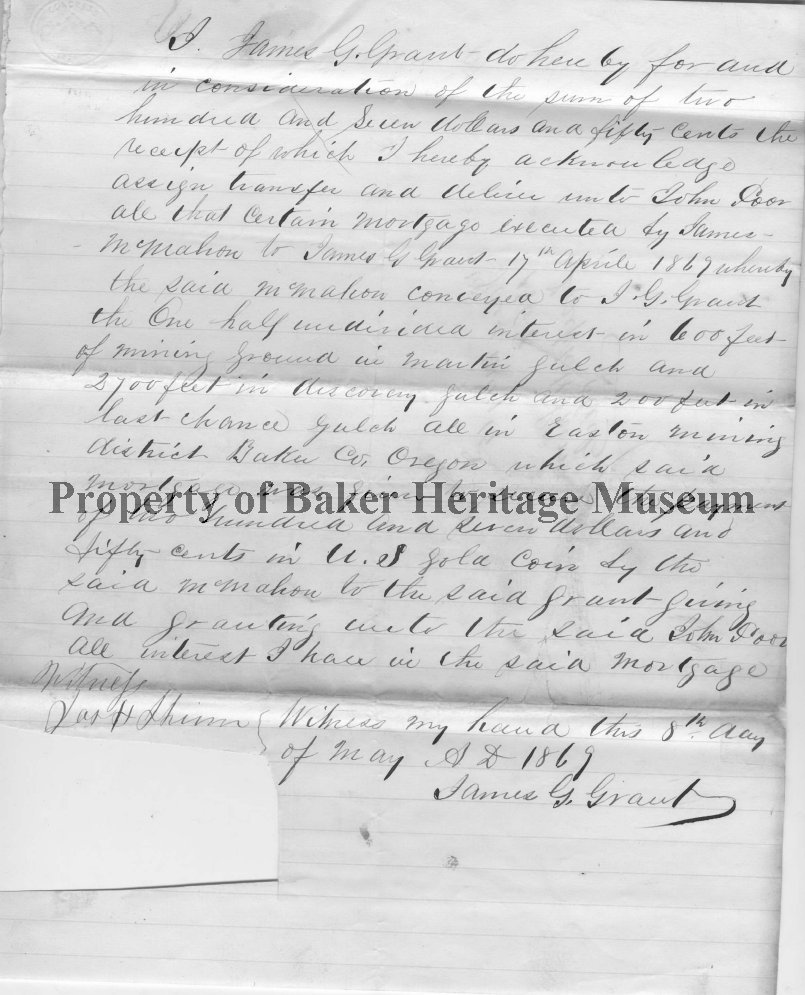 I. James G. Grant do hereby for and
in consideration of the sum of two
hundred and seven dollars and fifty cents the
receipt of which I hereby acknowledge
assign transfer and deliver unto John Poor
all that certain mortgage executed by James
McMahon to James G Grant 17th Aprile 1869 whereby
the said McMahon conveyed to J. G. Grant
the One half undivided interest in 600 feet
of mining ground in Martin gulch and
2700 feet in discovery gulch and 200 feet in
last chance gulch all in Easton mining
district Baker Co, Oregon which said
mortgage was given to secure the payment
Property of Baker Heritage Museum
of two hundred and seven dollars and
fifty cents in U.S gold coin by the
said McMahon to the said grant giving
and granting unto the said John Poor
all interest I have in the said mortgage
Witness
Jas H Shinn { Witness my hand this 8th day
of May A D 1869
James G. Grant